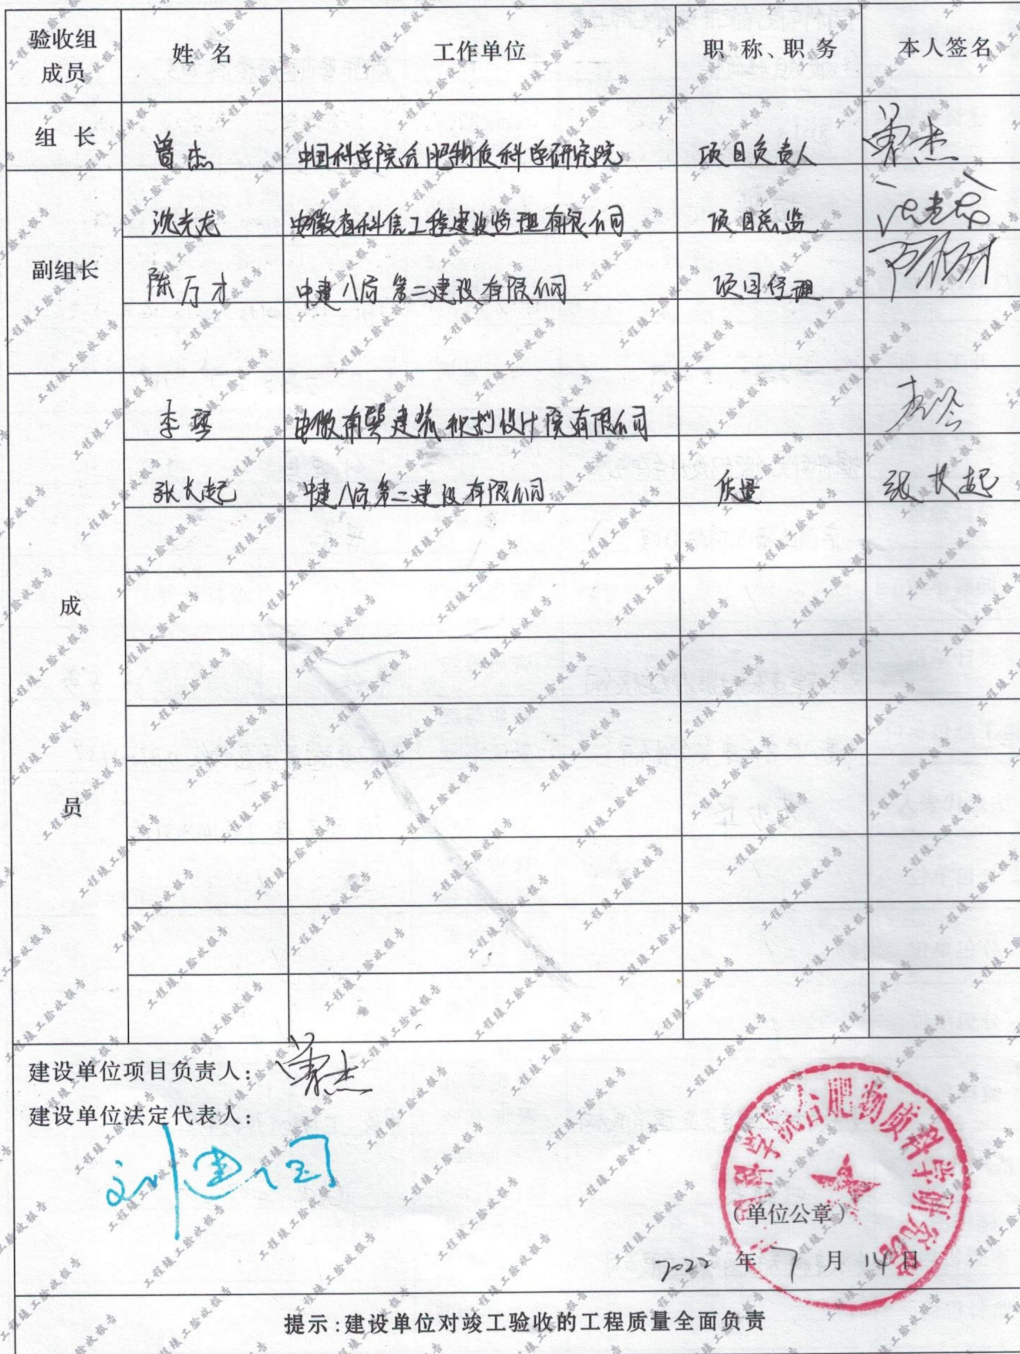 验收组成员 姓 名 工作单位 职 称、职 务 本人签名
组 长 曾杰 中国科学院合肥物质科学研究院 项目负责人 曾杰
沈光龙 安徽省科信工程建设监理有限公司 项目总监 沈光龙
副组长 陈万才 中建八局第二建设有限公司 项目经理
李琴 安徽南巽建筑规划设计院有限公司 李琴
张长起 中建八局第二建设有限公司 质量 张长起
成
员
建设单位项目负责人: 曾杰
建设单位法定代表人:
刘建国
中国科学院合肥物质科学研究院
(单位公章)
2022 年 7 月 14 日
提示:建设单位对竣工验收的工程质量全面负责
工程竣工验收报告